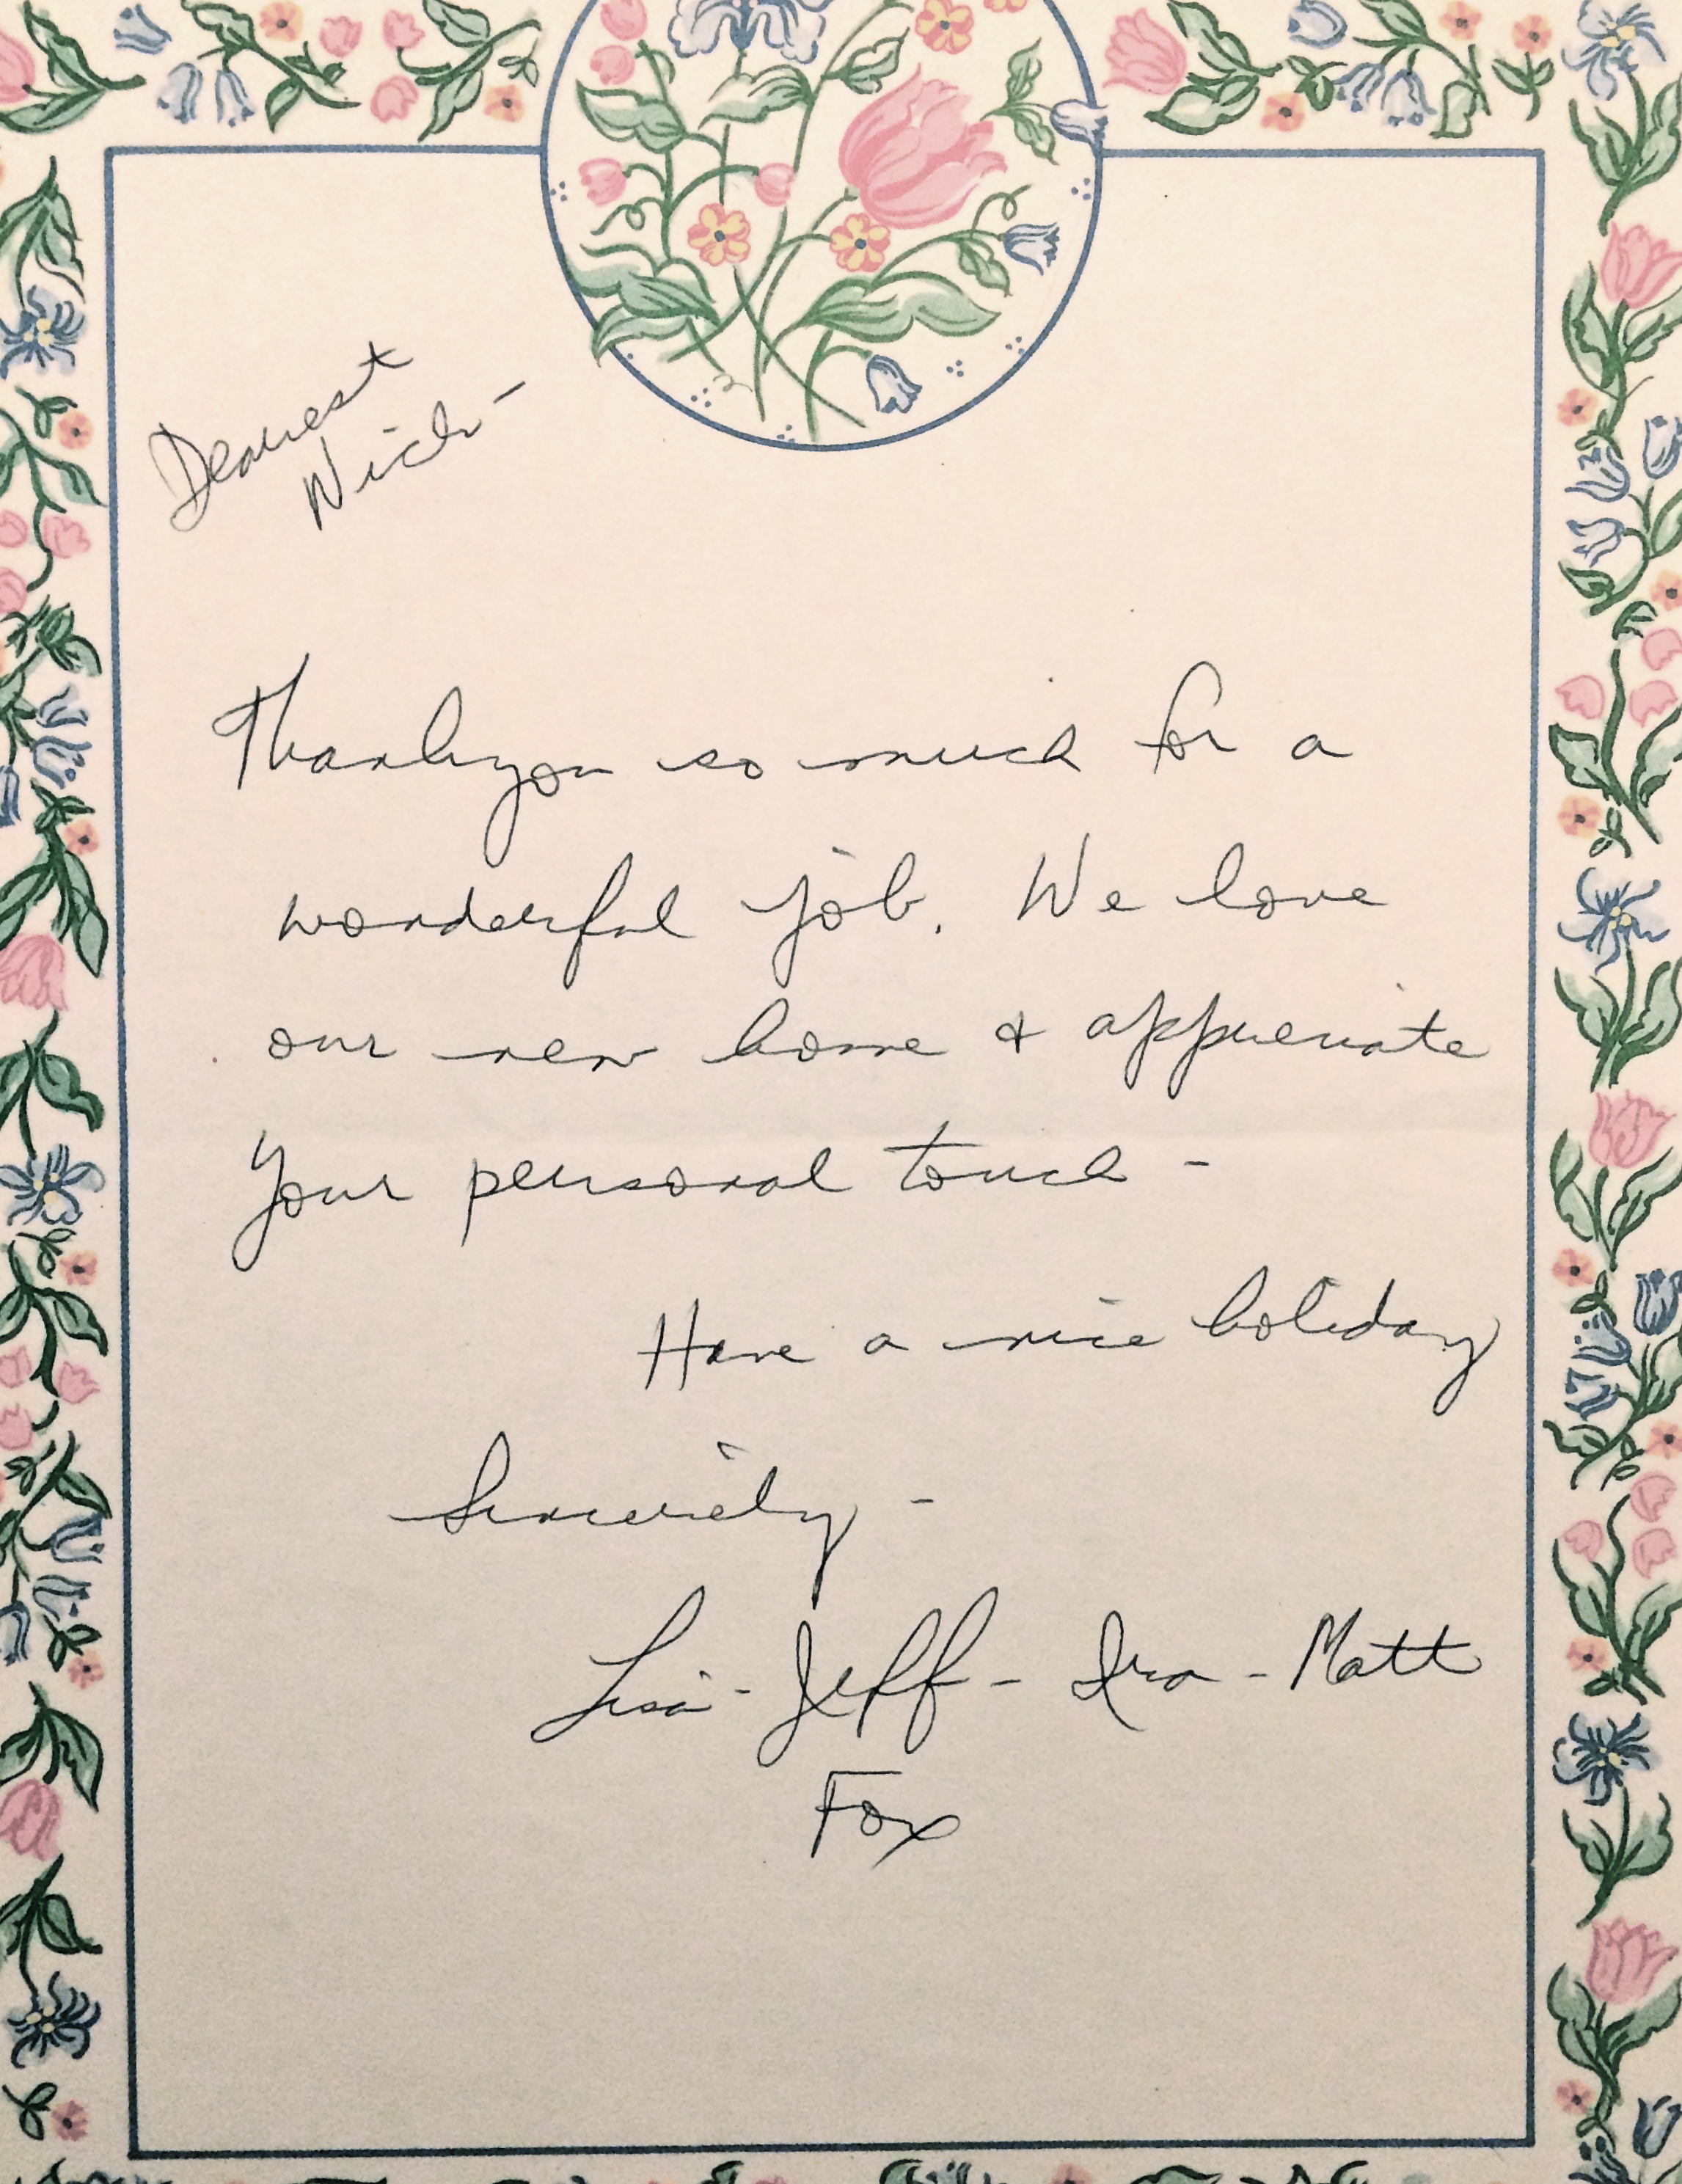 Dearest
Nick -
Thankyou so much for a
wonderful job. We love
our new home & appreciate
Your personal touch -
Have a nice holiday
Sincerely -
Lisa - Jeff - Ira - Matt
Fox